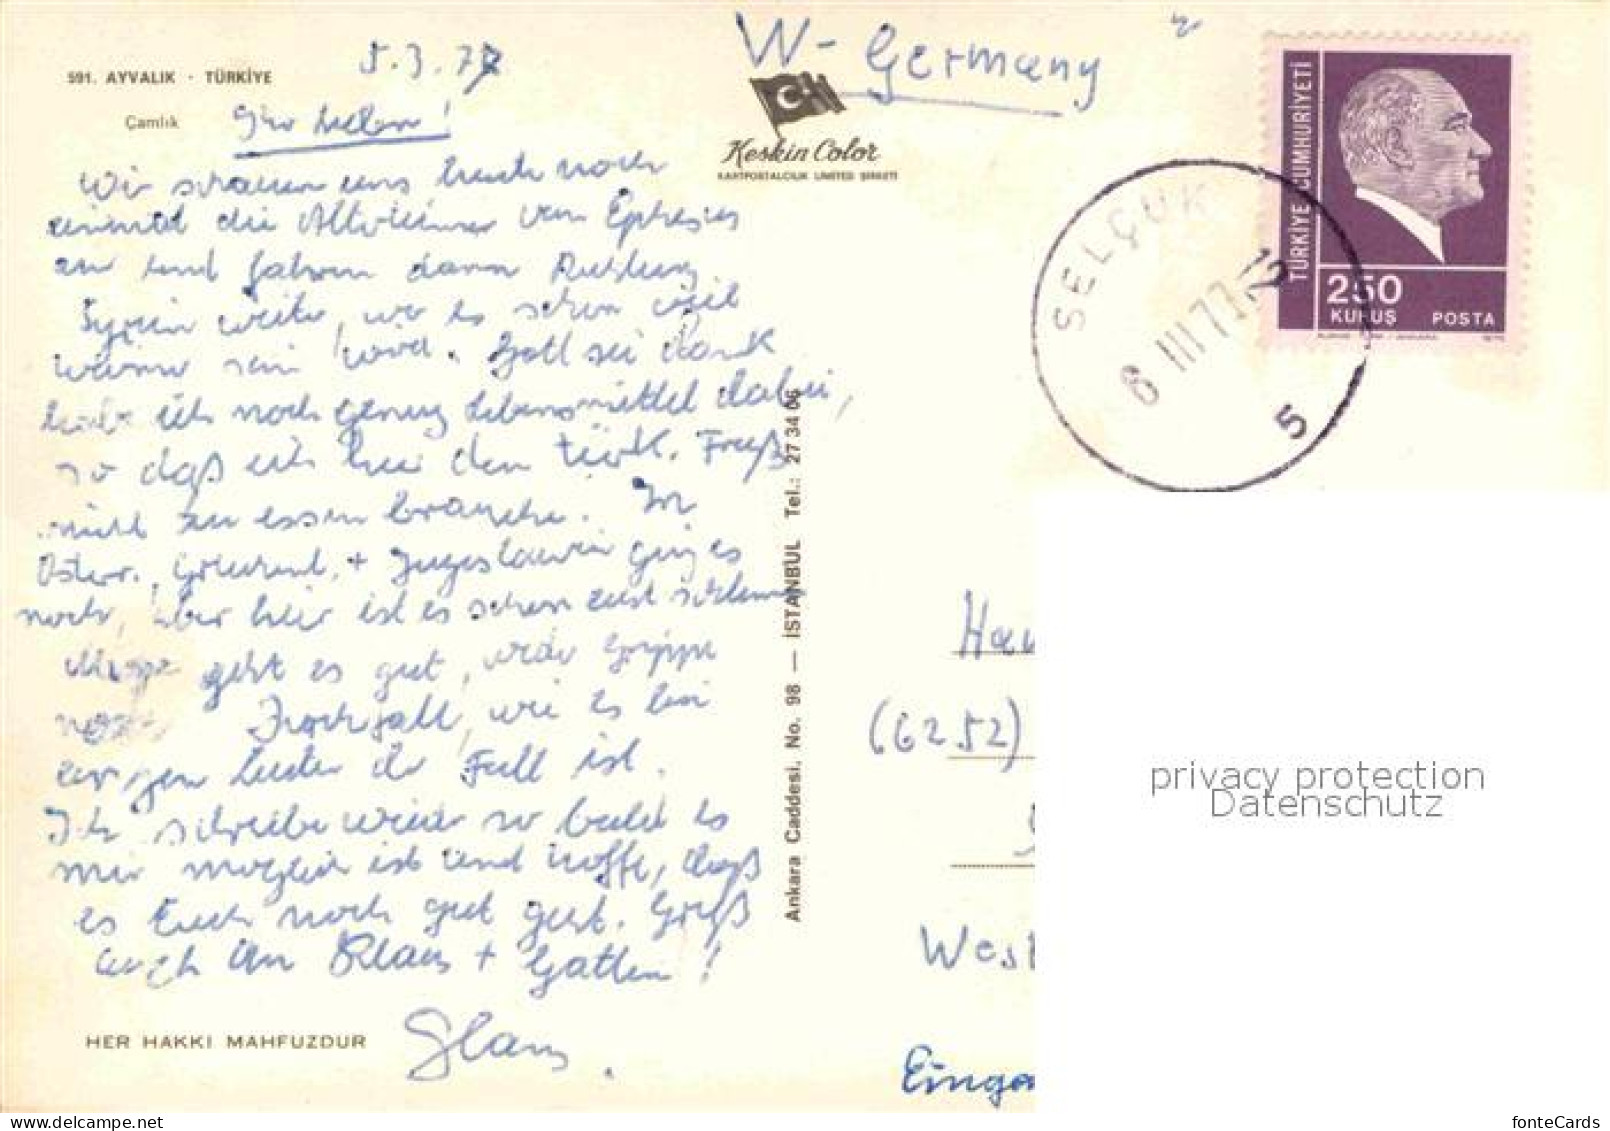 591. AYVALIK · TÜRKİYE
5.3.77
Çamlık
W-Germany
Keskin Color
KARTPOSTALCILIK LIMITED ŞIRKETI
TÜRKİYE CUMHURİYETİ
250
KURUŞ POSTA
SELÇUK
6 III 77 12
5
Ihr Lieben!
Wir schauen uns heute noch
einmal die Altertümer von Ephesus
an und fahren dann Richtung
Syrien weiter, wo es schon viel
wärmer sein wird. Gott sei dank
habe ich noch genug Lebensmittel dabei,
so daß ich hier den türk. Fraß
nicht zu essen brauche. In
Österr., Griechenl. + Jugoslawien ging es
noch, aber hier ist es schon sehr schlimm
geht es gut, weder Grippe
noch Durchfall, wie es bei
einigen Leuten der Fall ist.
Ich schreibe wieder so bald es
mir möglich ist und hoffe, daß
es Euch noch gut geht. Gruß
auch an Klaus + Gattin!
HER HAKKI MAHFUZDUR
Ankara Caddesi. No. 98 — İSTANBUL Tel.: 27 34 06
(6252)
West
Einga
privacy protection
Datenschutz
www.delcampe.net
fonteCards